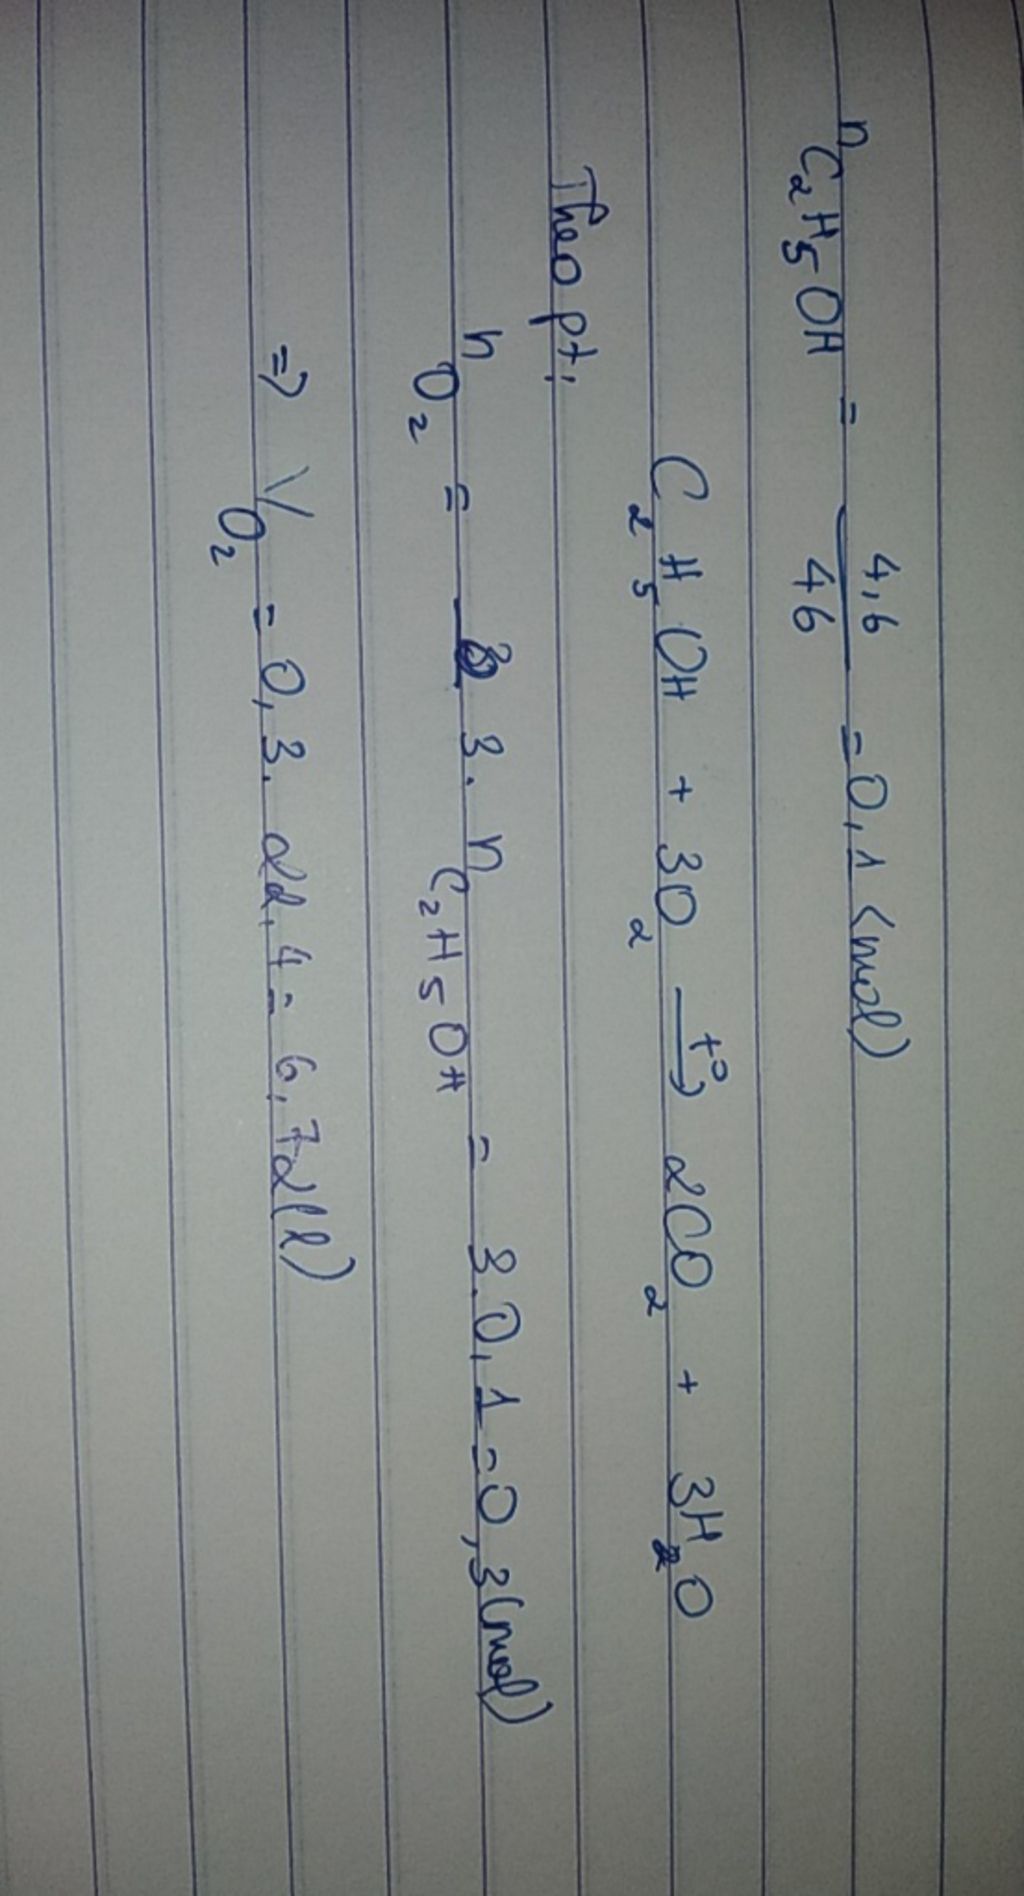 nC₂H₅OH = 4,6/46 = 0,1 (mol)
C₂H₅OH + 3O₂ —t°→ 2CO₂ + 3H₂O
Theo pt:
nO₂ = 3.nC₂H₅OH = 3.0,1 = 0,3(mol)
=> VO₂ = 0,3.22,4 = 6,72(l)